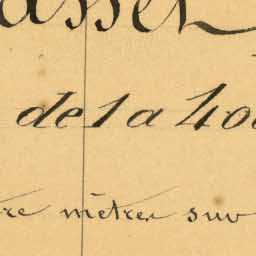 asset
de 1 a 400
tre mètres sur